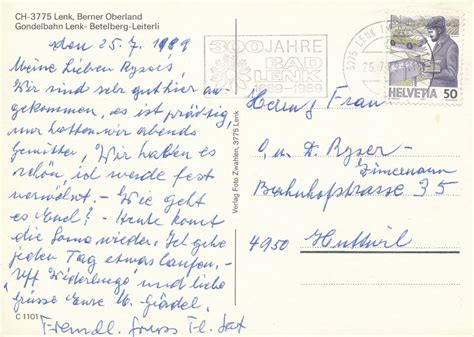 CH-3775 Lenk, Berner Oberland
Gondelbahn Lenk - Betelberg-Leiterli
den 25. 7. 1989
Meine Lieben Rysers,
Wir sind sehr gut hier an-
gekommen, es ist prächtig,
nur hatten wir abends
Gewitter, Wir haben es
schön, ich werde fest
verwöhnt. - Wie geht
es Euch? - Heute kommt
die Sonne wieder. Ich gehe
jeden Tag etwas laufen. -
Uff Widerluege und liebe
Grüsse Eure M.
Freundl. Gruss
C 1101
Verlag Foto Zwahlen, 3775 Lenk
300 JAHRE
BAD
LENK
1689-1989
3775 LENK
HELVETIA 50
Herrn & Frau
E. u. D. Ryser-
Zimmermann
Bahnhofstrasse 35
4950 Huttwil